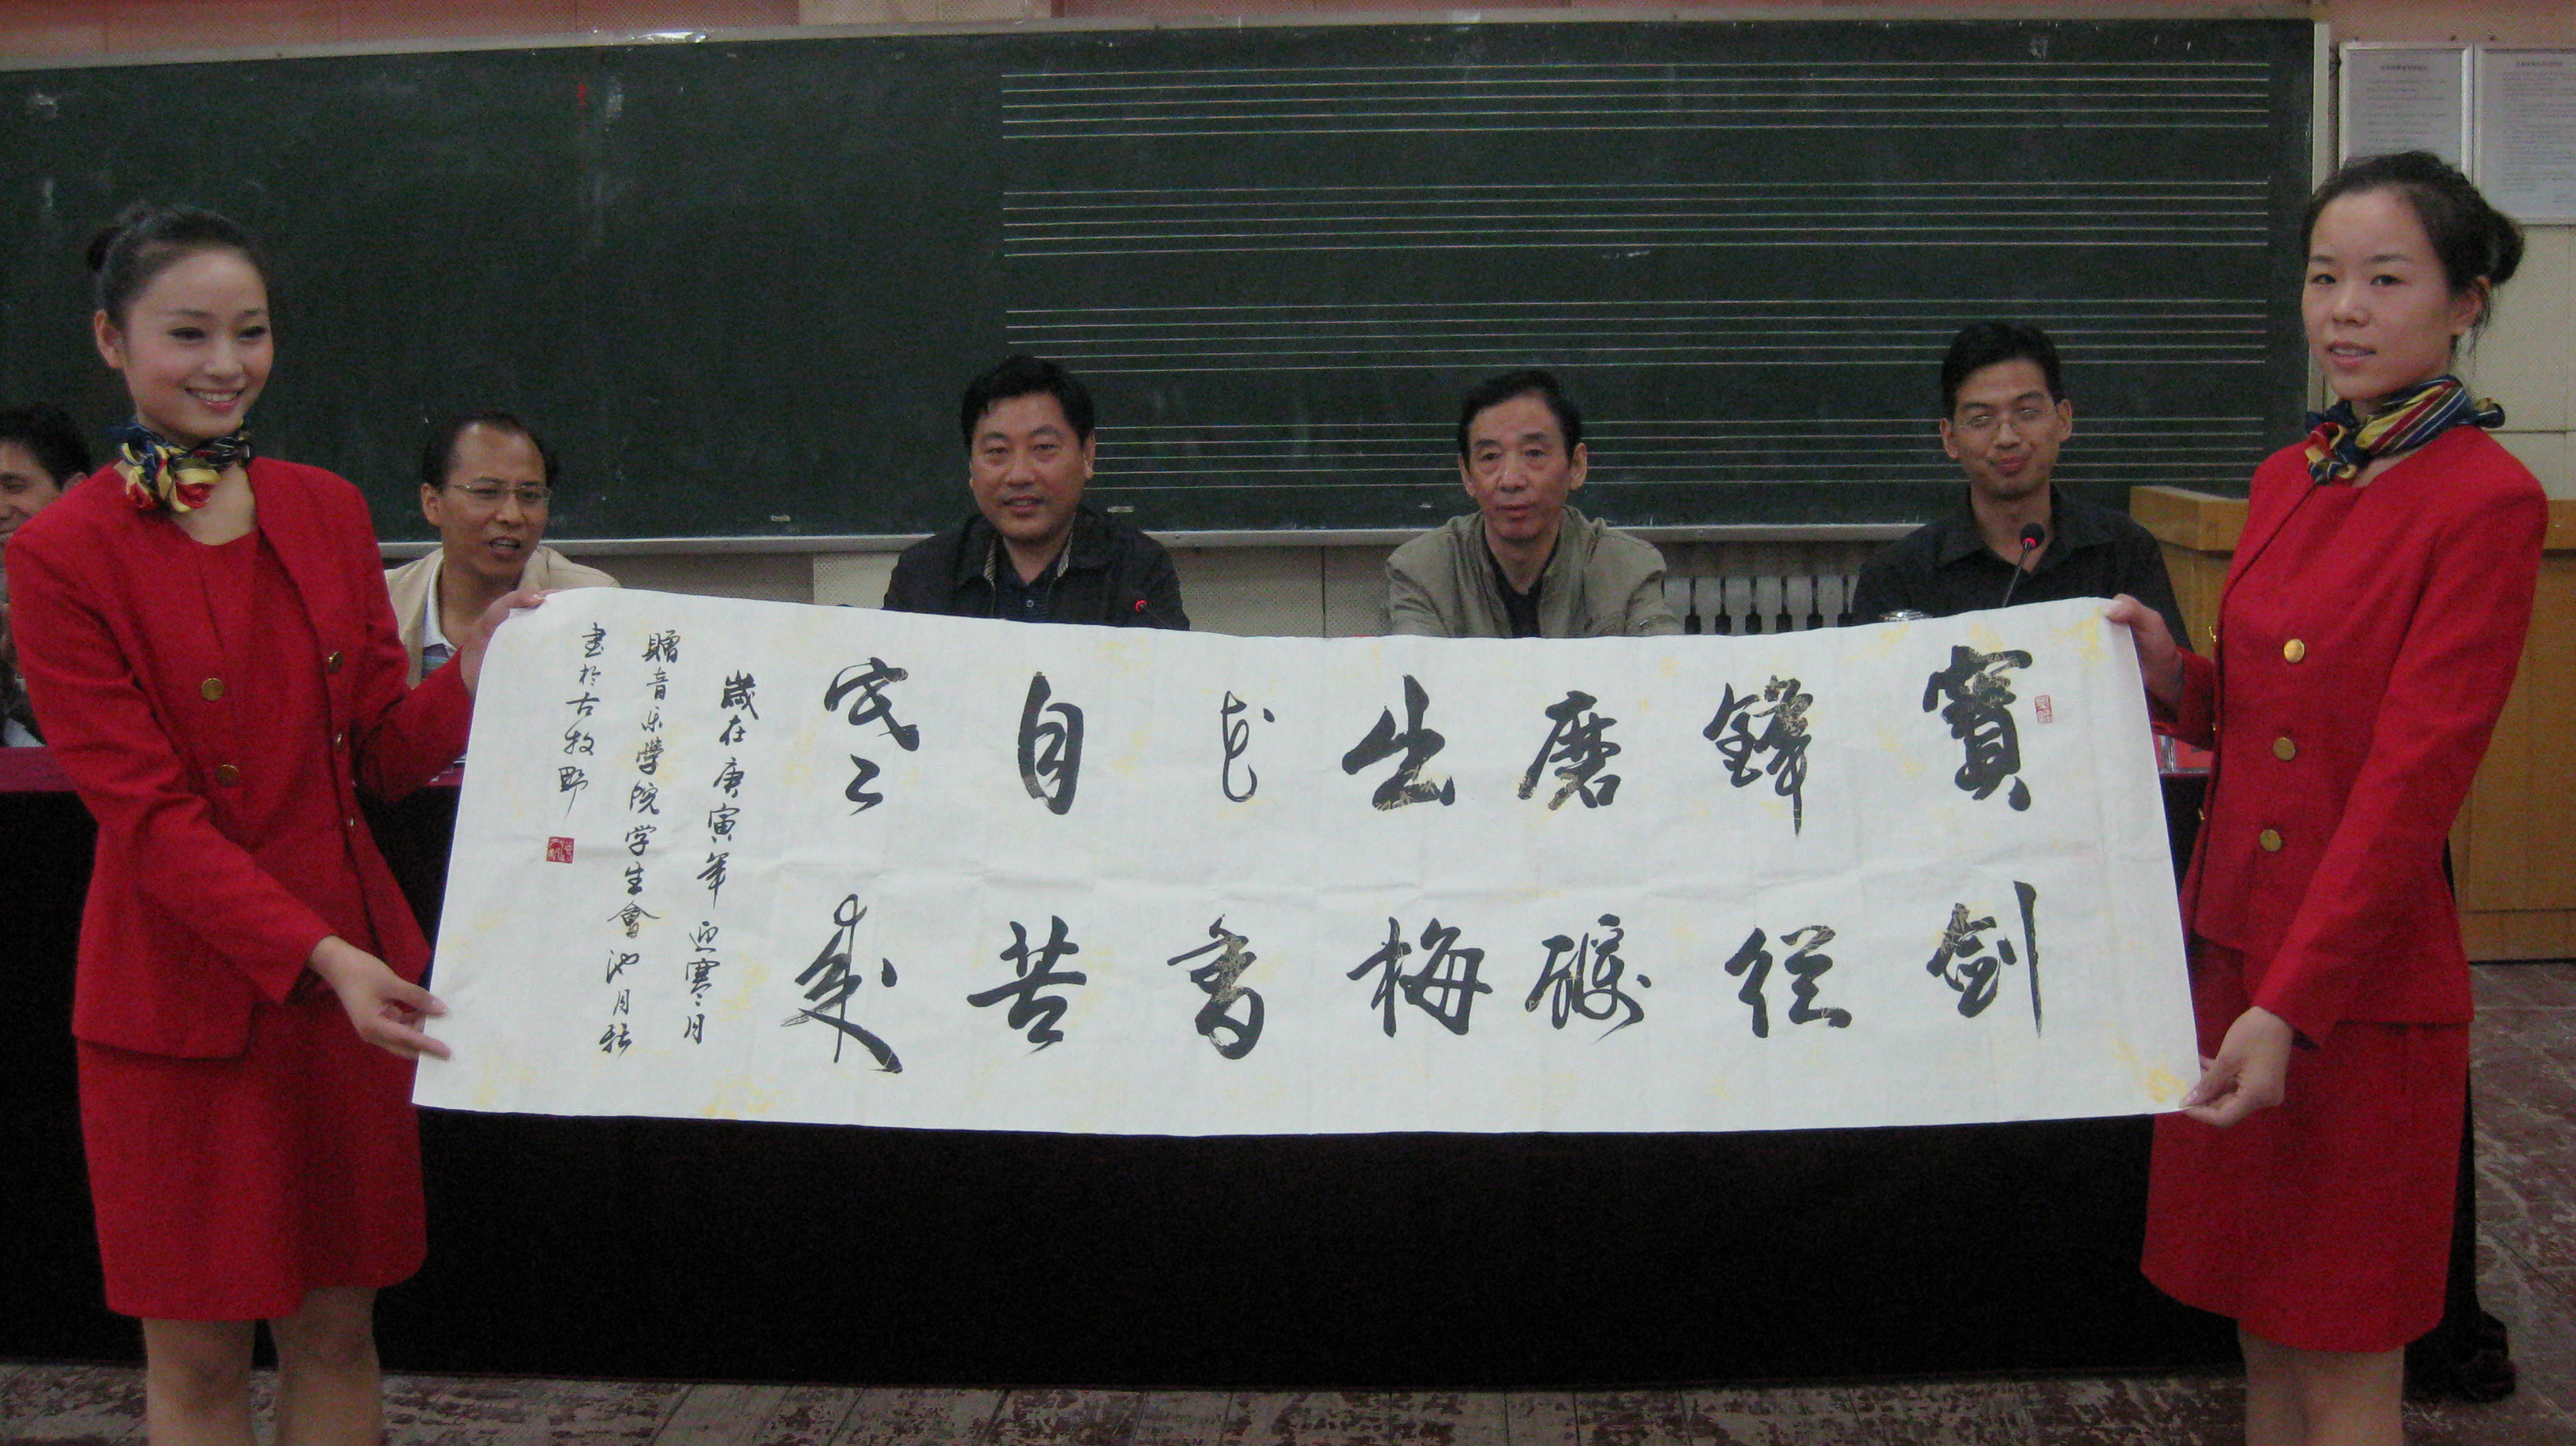 寶劍
鋒從
磨礪
出梅
花香
自苦
寒來
歲在庚寅年迎寒月
贈音乐學院学生會池月
書於古牧野